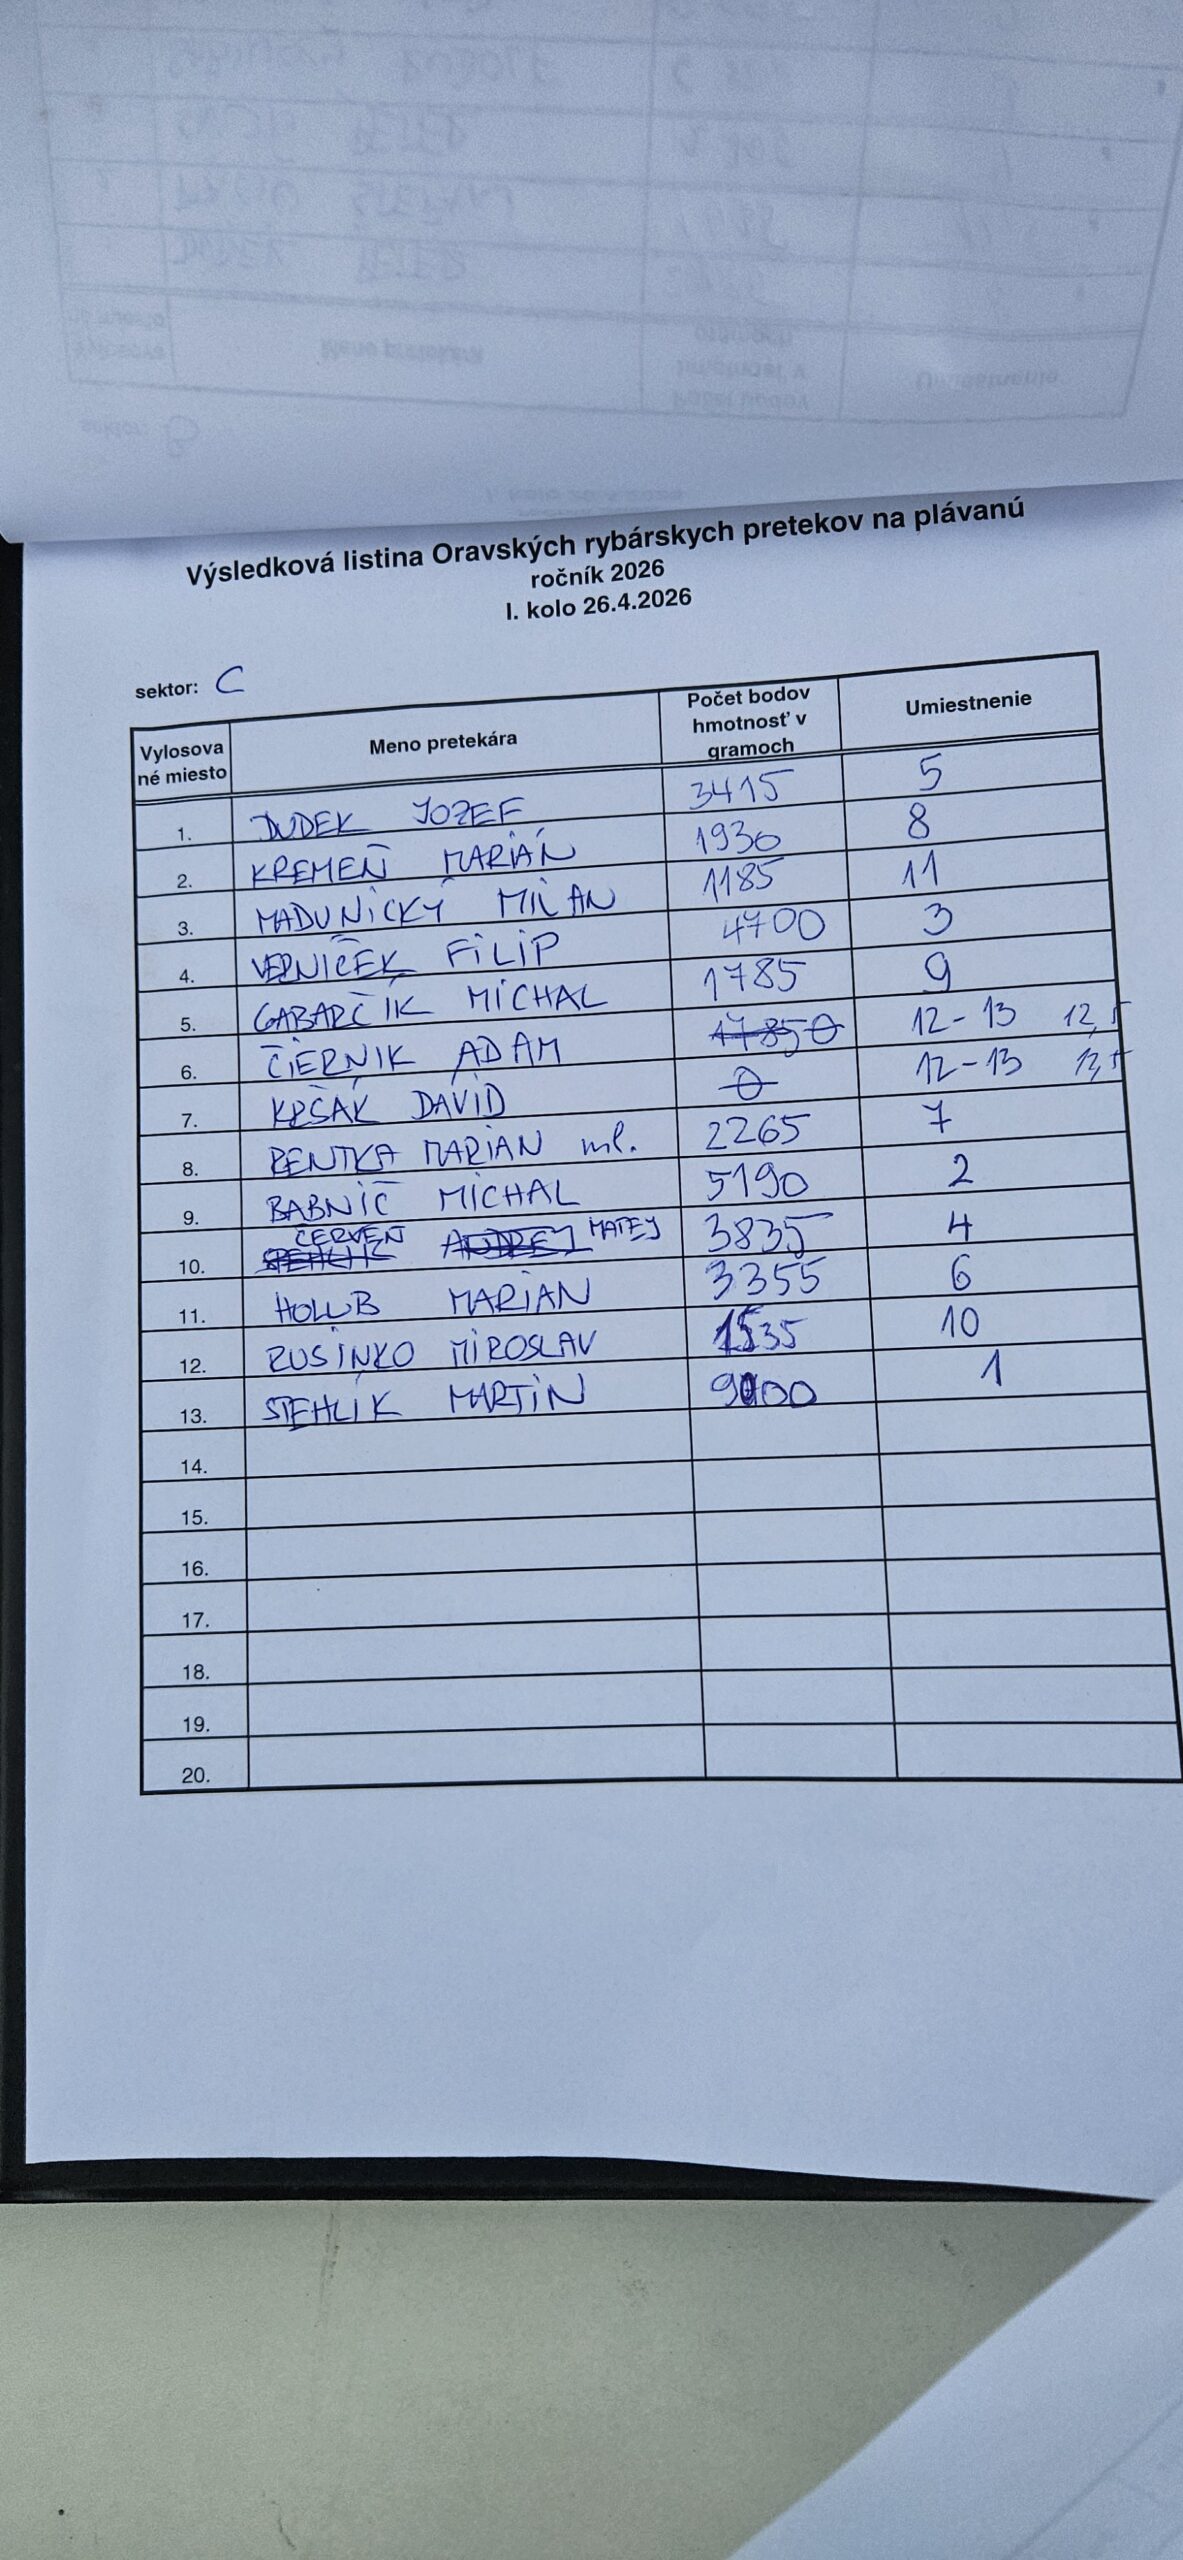 Výsledková listina Oravských rybárskych pretekov na plávanú
ročník 2026
I. kolo 26.4.2026
sektor: C
Vylosova né miesto Meno pretekára Počet bodov hmotnosť v gramoch Umiestnenie
1. DUDEK JOZEF 3415 5
2. KREMEŇ MARIÁN 1930 8
3. MADUNICKÝ MILAN 1185 11
4. VERNÍČEK FILIP 4700 3
5. GABARČÍK MICHAL 1785 9
6. ČIERNIK ADAM 0 12-13 12,5
7. KRŠÁK DAVID 0 12-13
8. RENTKA MARIAN ml. 2265 7
9. BABNIČ MICHAL 5190 2
10. ČERVEŇ MATEJ 3835 4
11. HOLUB MARIAN 3355 6
12. RUSINKO MIROSLAV 1535 10
13. STEHLÍK MARTIN 1
14.
15.
16.
17.
18.
19.
20.